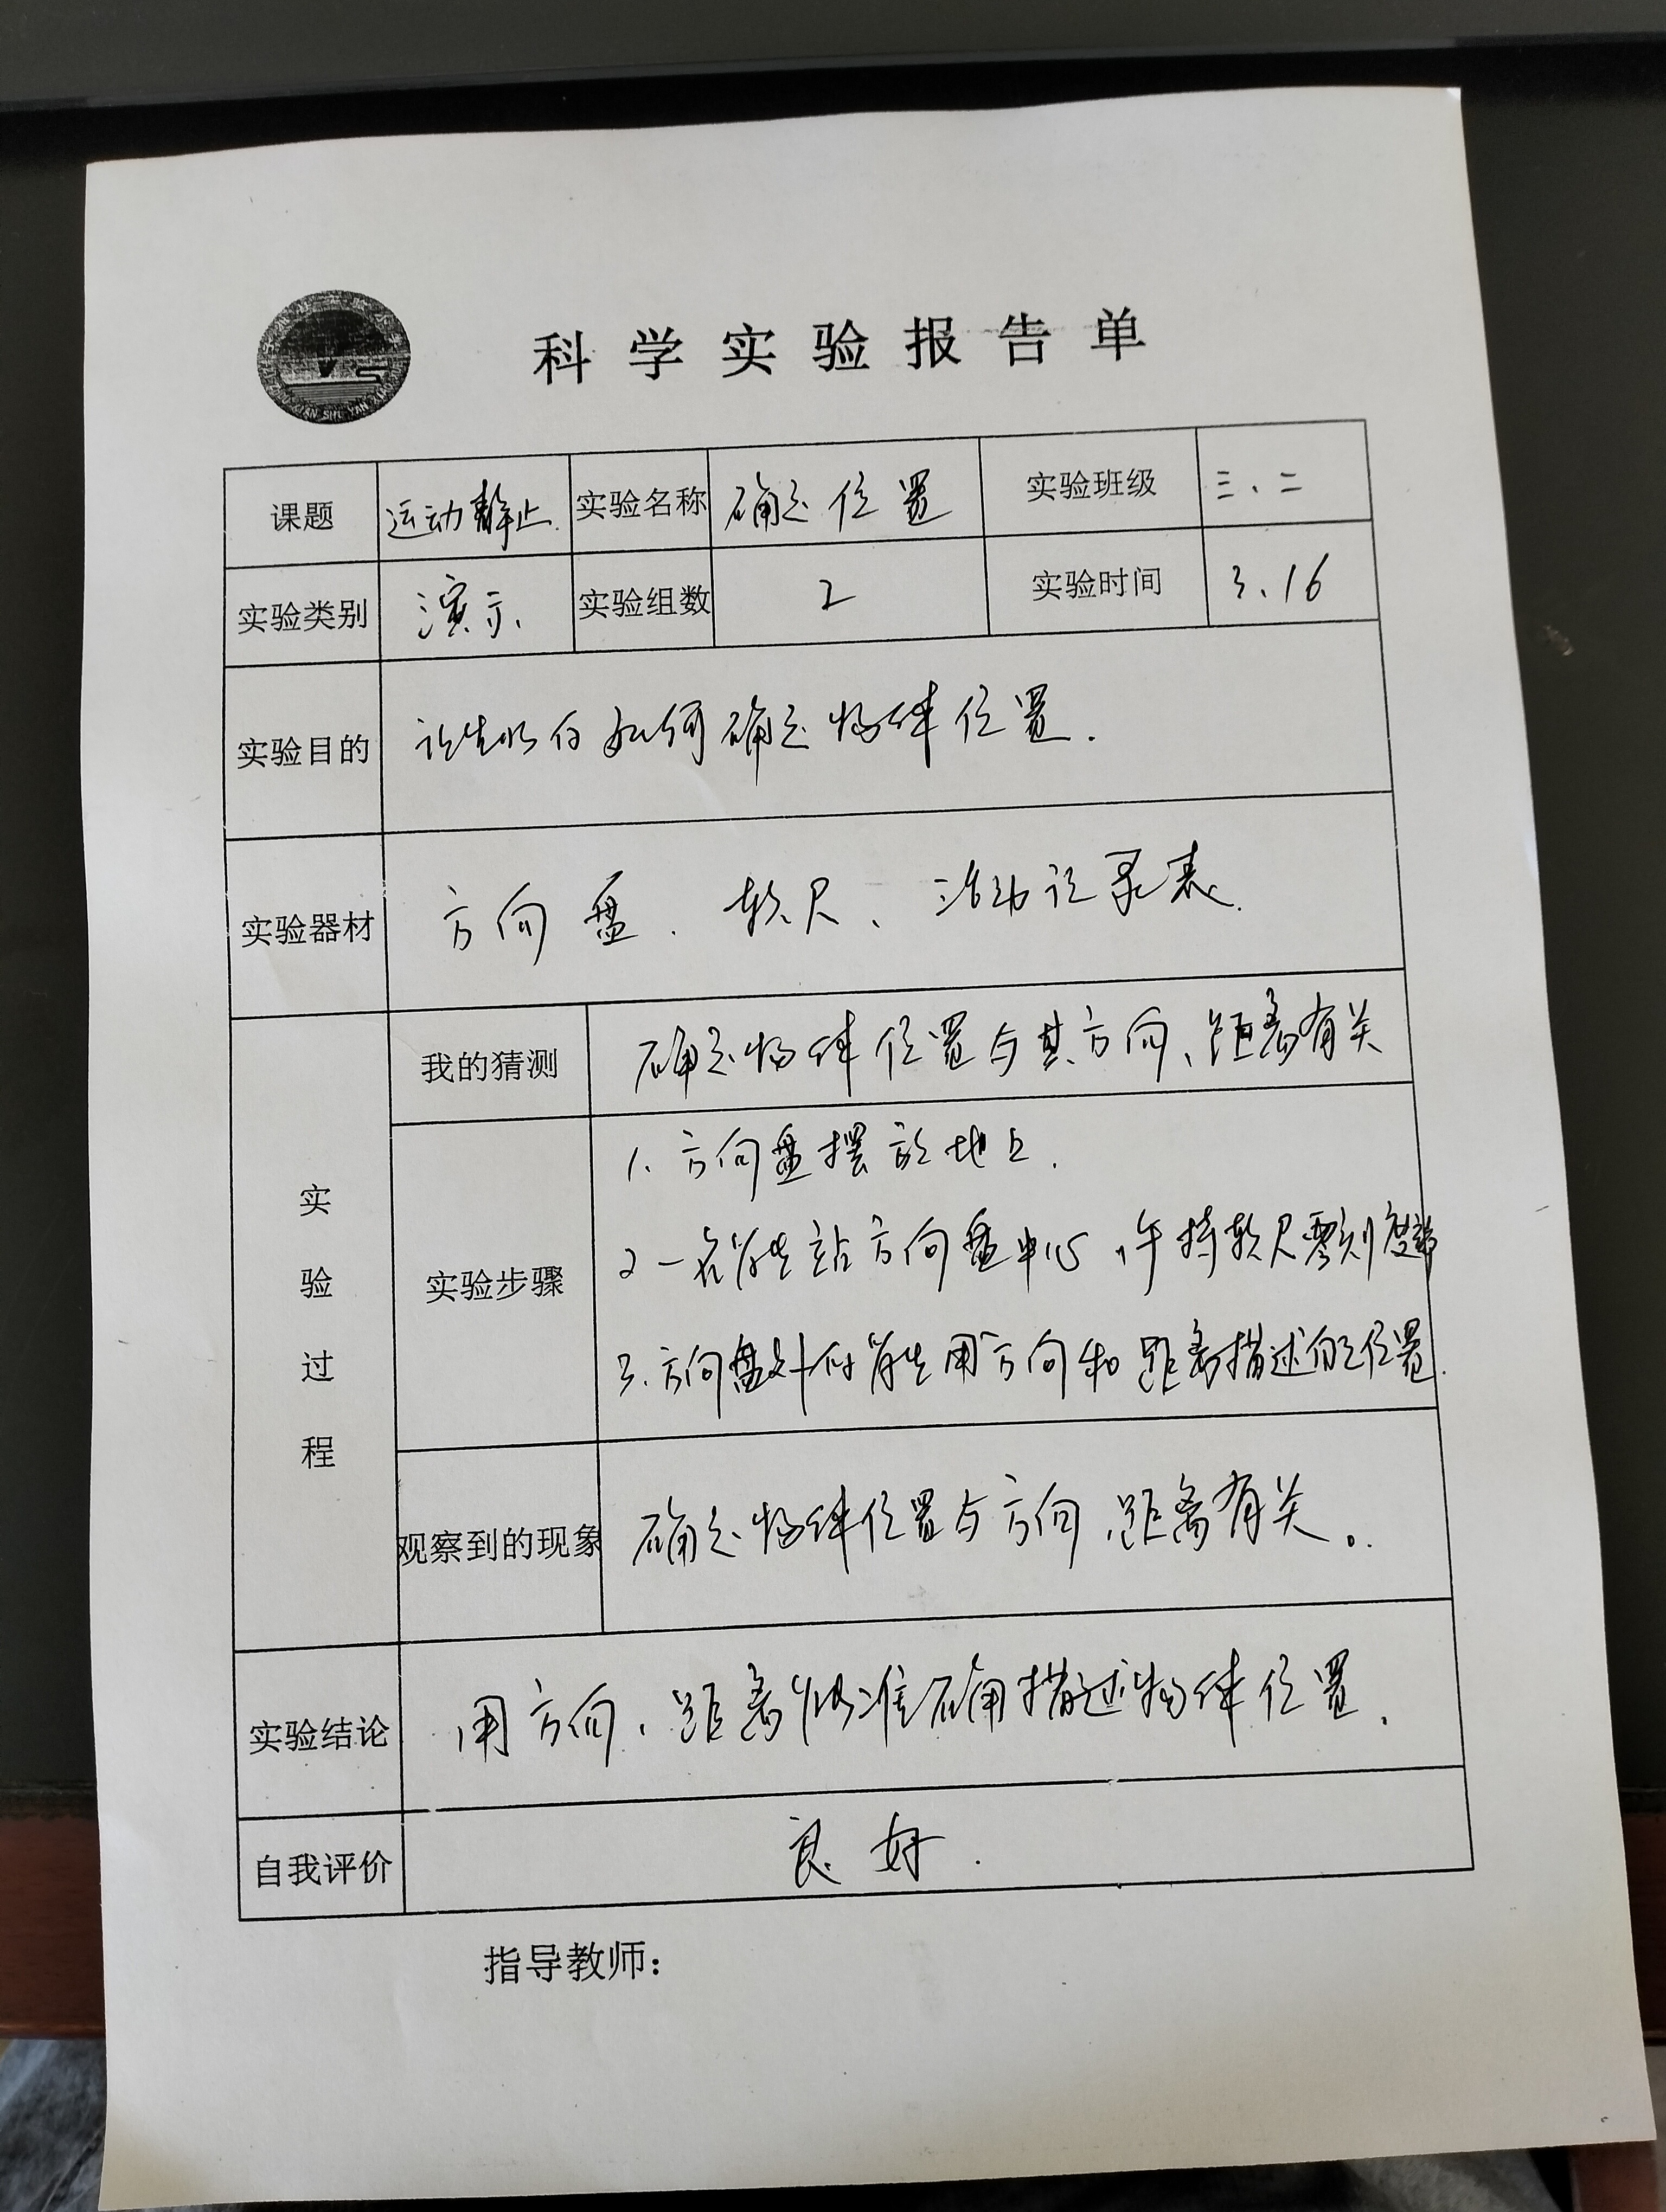 科学实验报告单
课题 运动静止. 实验名称 确定位置 实验班级 三、二
实验类别 演示、 实验组数 2 实验时间 3、16
实验目的 让生明白如何确定物体位置.
实验器材 方向盘、软尺、活动记录表.
实验过程
我的猜测 确定物体位置与其方向、距离有关
实验步骤 1、方向盘摆放地上.
2 一名学生站方向盘中心,手持软尺零刻度端
3、方向盘外的学生用方向和距离描述自己位置.
观察到的现象 确定物体位置与方向、距离有关。
实验结论 用方向、距离准确描述物体位置.
自我评价 良好.
指导教师：